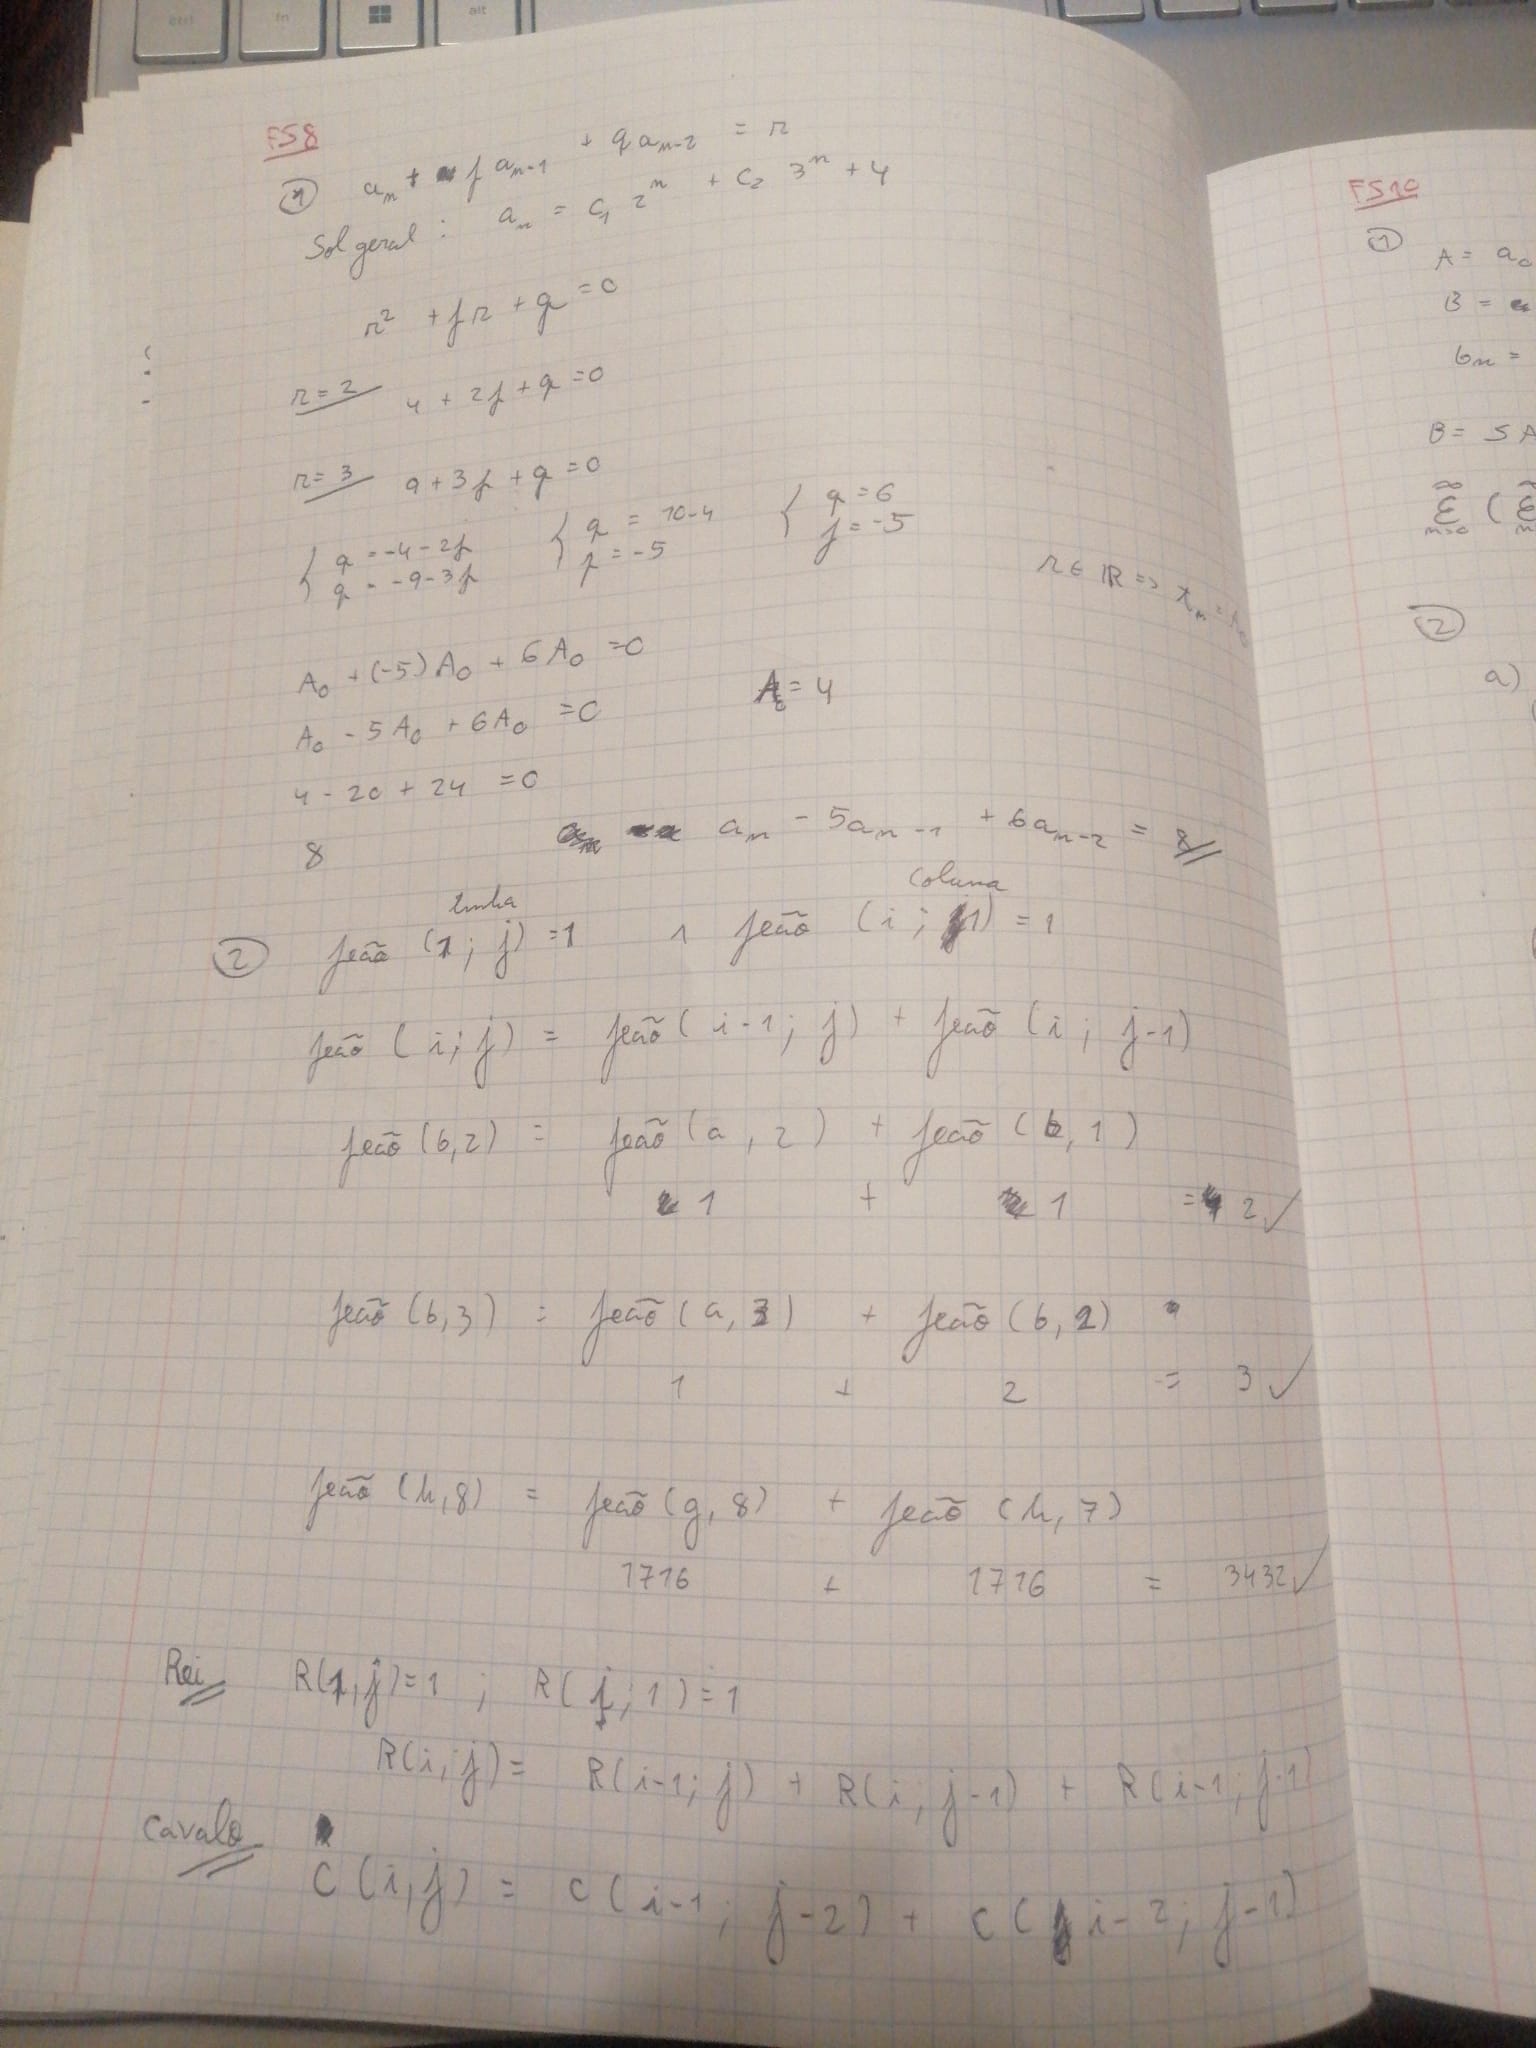 ctrl fn alt
FS8
① aₙ + p aₙ₋₁ + q aₙ₋₂ = r
Sol geral: aₙ = C₁ 2ⁿ + C₂ 3ⁿ + 4
r² + pr + q = 0
r=2 4 + 2p + q = 0
r=3 9 + 3p + q = 0
{ q = -4-2p { q = 10-4 { q = 6
{ q = -9-3p { p = -5 { p = -5
r ∈ ℝ => xₙ = A₀
A₀ + (-5)A₀ + 6A₀ = 0
A₀ = 4
A₀ - 5A₀ + 6A₀ = 0
4 - 20 + 24 = 0
8 aₙ - 5aₙ₋₁ + 6aₙ₋₂ = 8
linha coluna
② peão (1; j) = 1 ∧ peão (i; 1) = 1
peão (i; j) = peão (i-1; j) + peão (i; j-1)
peão (b,2) = peão (a, 2) + peão (b, 1)
1 + 1 = 2 ✓
peão (b,3) = peão (a, 3) + peão (b, 2)
1 + 2 = 3 ✓
peão (h,8) = peão (g, 8) + peão (h, 7)
1716 + 1716 = 3432 ✓
Rei R(1,j) = 1 ; R(i; 1) = 1
R(i,j) = R(i-1; j) + R(i; j-1) + R(i-1; j-1)
Cavalo
C (i,j) = C (i-1; j-2) + C (i-2; j-1)
FS10
① A = a₀
B =
bₙ =
B = 5A
②
a)